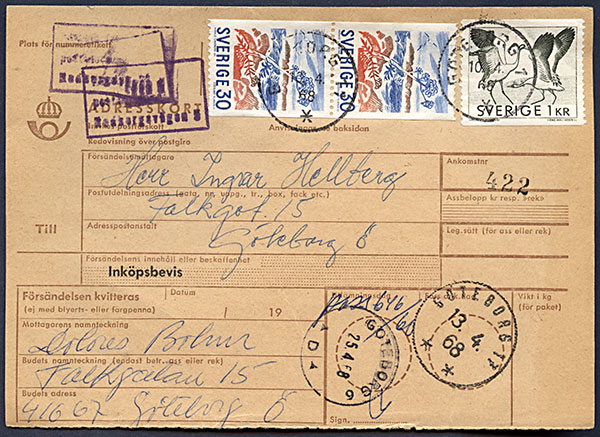 Plats för nummeretikett
SVERIGE 30
SVERIGE 30
SVERIGE 1 KR
GÖTEBORG 17
13. 4.
68
ADRESSKORT
Inrikes postförskott
Anvisningar se baksidan
Redovisning över postgiro
Försändelsemottagare
Herr Ingvar Hellberg
Ankomstnr
422
Postutdelningsadress (gata, nr, uppg., tr., box, fack etc.)
Falkgat. 15
Assbelopp kr resp. »rek»
Till
Adresspostanstalt
Göteborg Ö
Leg.sätt (för ass eller rek)
Försändelsens innehåll eller beskaffenhet
Inköpsbevis
Försändelsen kvitteras
(ej med blyerts- eller färgpenna)
Datum
/ 19
Vikt i kg
(för paket)
Mottagarens namnteckning
Dolores
GÖTEBORG 17
13. 4.
68
GÖTEBORG
25.4.68
9
Budets namnteckning (endast betr. ass eller rek)
15
Budets adress
416 67 Göteborg Ö
Sign.